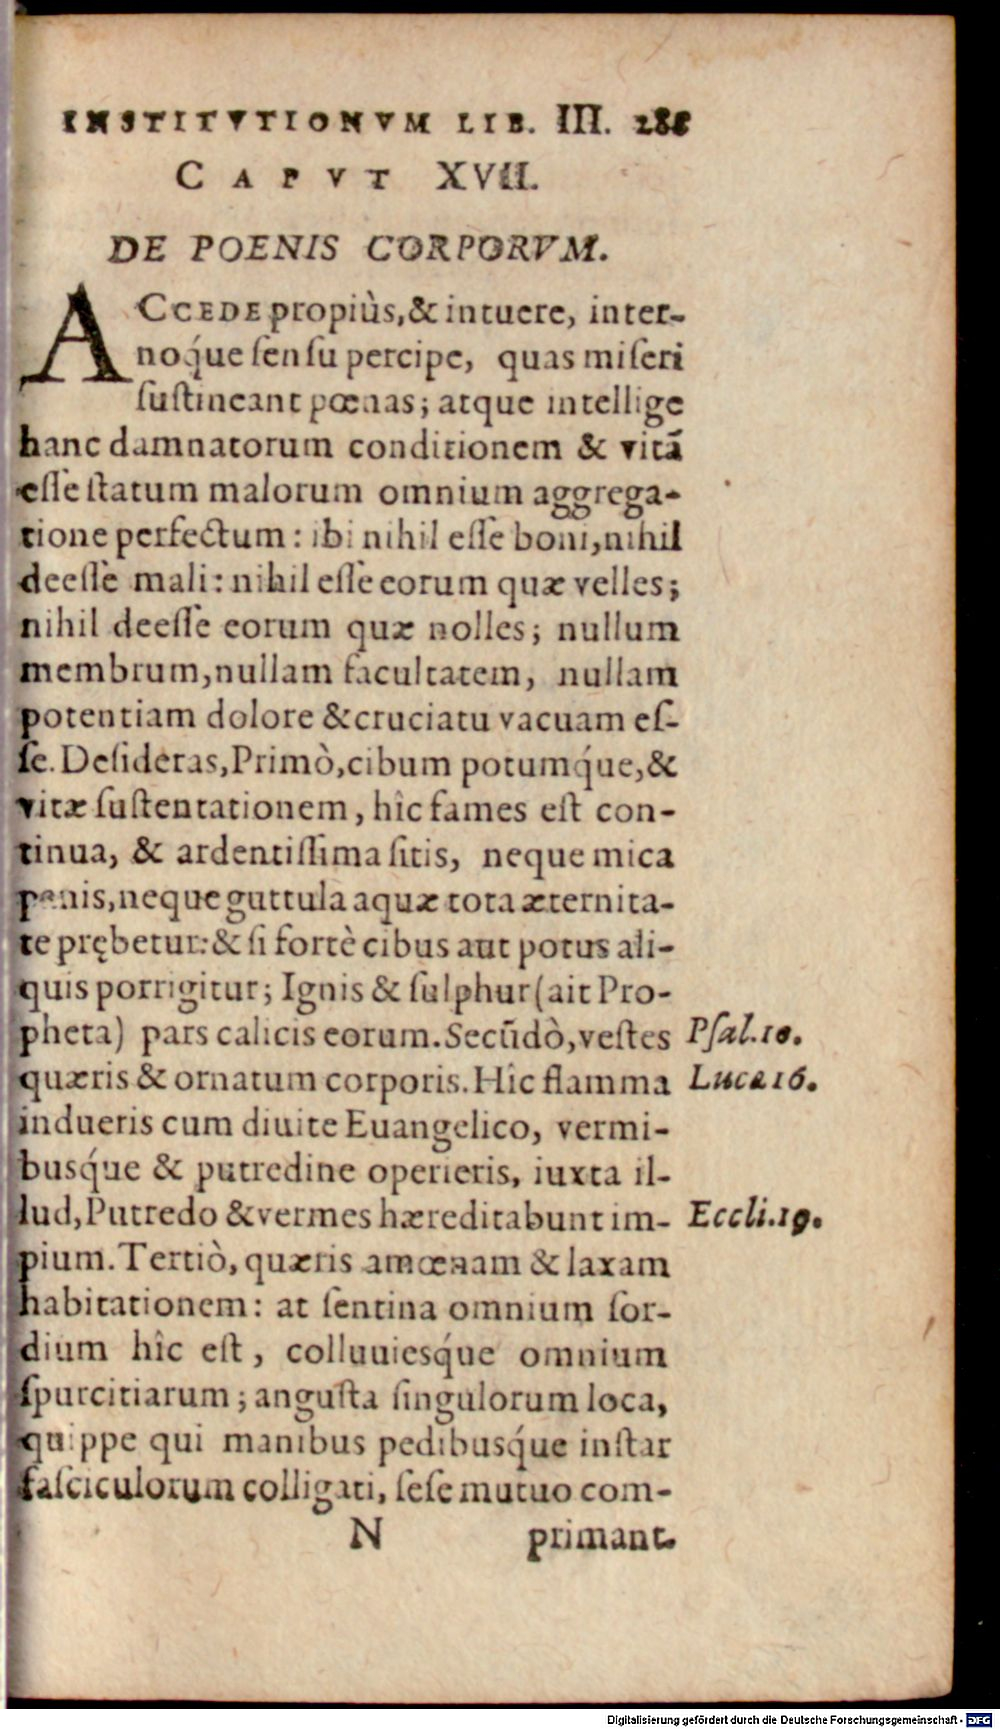 INSTITVTIONVM LIB. III. 288
CAPVT XVII.
DE POENIS CORPORVM.
ACCEDE propiùs, & intuere, inter-
noq́ue sensu percipe, quas miseri
sustineant pœnas; atque intellige
hanc damnatorum conditionem & vitã
esse statum malorum omnium aggrega-
tione perfectum: ibi nihil esse boni, nihil
deesse mali: nihil esse eorum quæ velles;
nihil deesse eorum quæ nolles; nullum
membrum, nullam facultatem, nullam
potentiam dolore & cruciatu vacuam es-
se. Desideras, Primò, cibum potumq́ue, &
vitæ sustentationem, hîc fames est con-
tinua, & ardentissima sitis, neque mica
panis, neque guttula aquæ tota æternita-
te prębetur: & si fortè cibus aut potus ali-
quis porrigitur; Ignis & sulphur (ait Pro-
pheta) pars calicis eorum. Secũdò, vestes Psal. 10.
quæris & ornatum corporis. Hîc flamma Lucæ 16.
indueris cum diuite Euangelico, vermi-
busq́ue & putredine operieris, iuxta il-
lud, Putredo & vermes hæreditabunt im- Eccli. 19.
pium. Tertiò, quæris amœnam & laxam
habitationem: at sentina omnium sor-
dium hîc est, colluuiesq́ue omnium
spurcitiarum; angusta singulorum loca,
quippe qui manibus pedibusq́ue instar
fasciculorum colligati, sese mutuo com-
N primant.
Digitalisierung gefördert durch die Deutsche Forschungsgemeinschaft - DFG